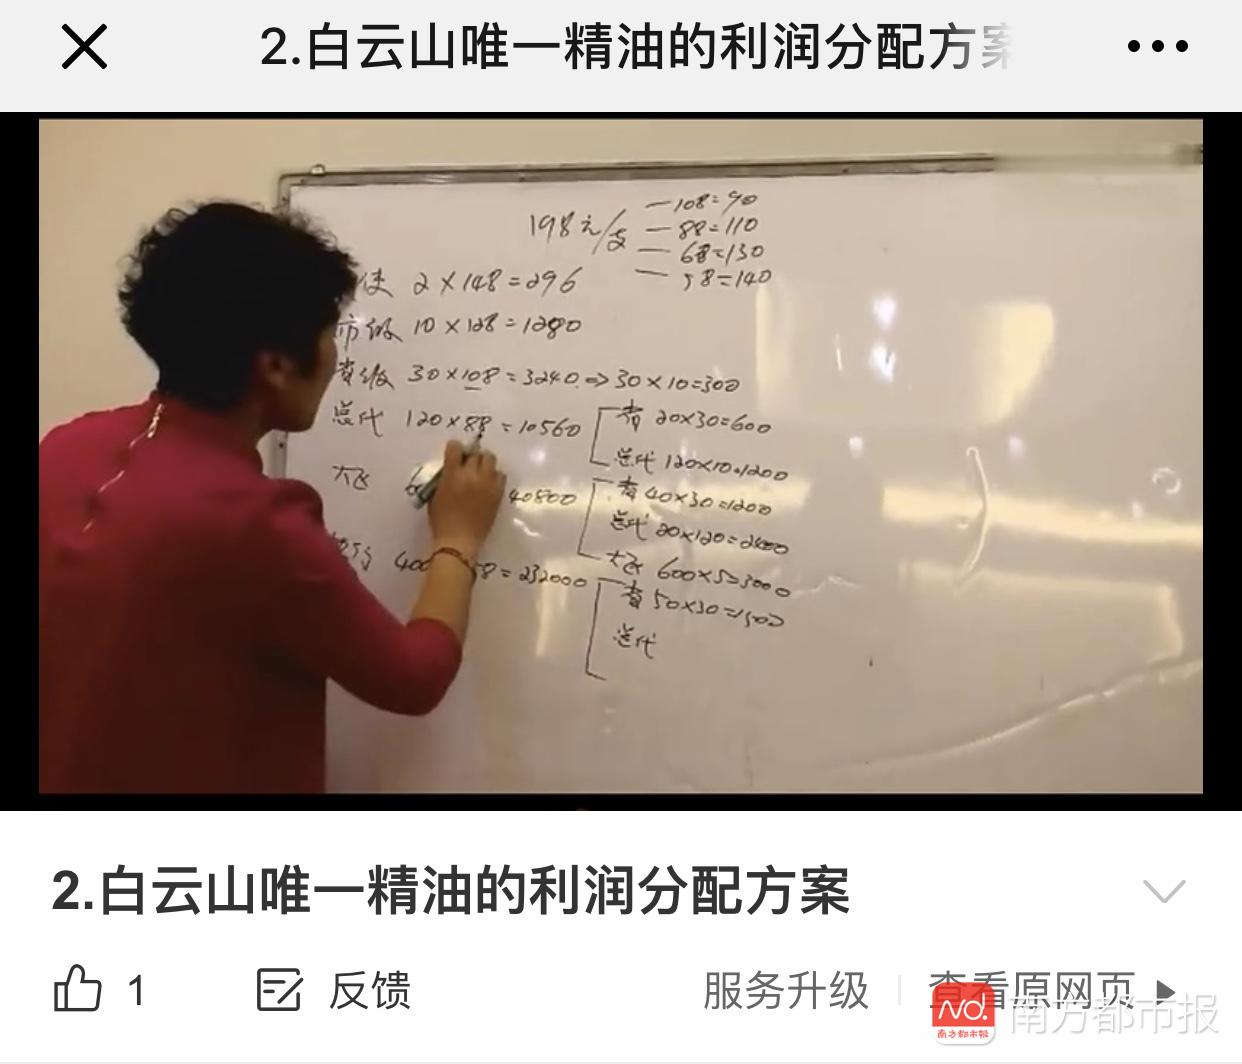 2.白云山唯一精油的利润分配方案
198元/支
一108=90
一88=110
一68=130
一58=140
使 2×148=296
市级 10×128=1280
省级 30×108=3240.=>30×10=300
总代 120×88=10560
省 20×30=600
总代 120×10=1200
大区
40800
省 40×30=1200
总代 20×120=2400
大区 600×5=3000
400
58=232000
省 50×30=1500
总代
2.白云山唯一精油的利润分配方案
1 反馈 服务升级 查看原网页
Nd. 南方都市报
南方都市报